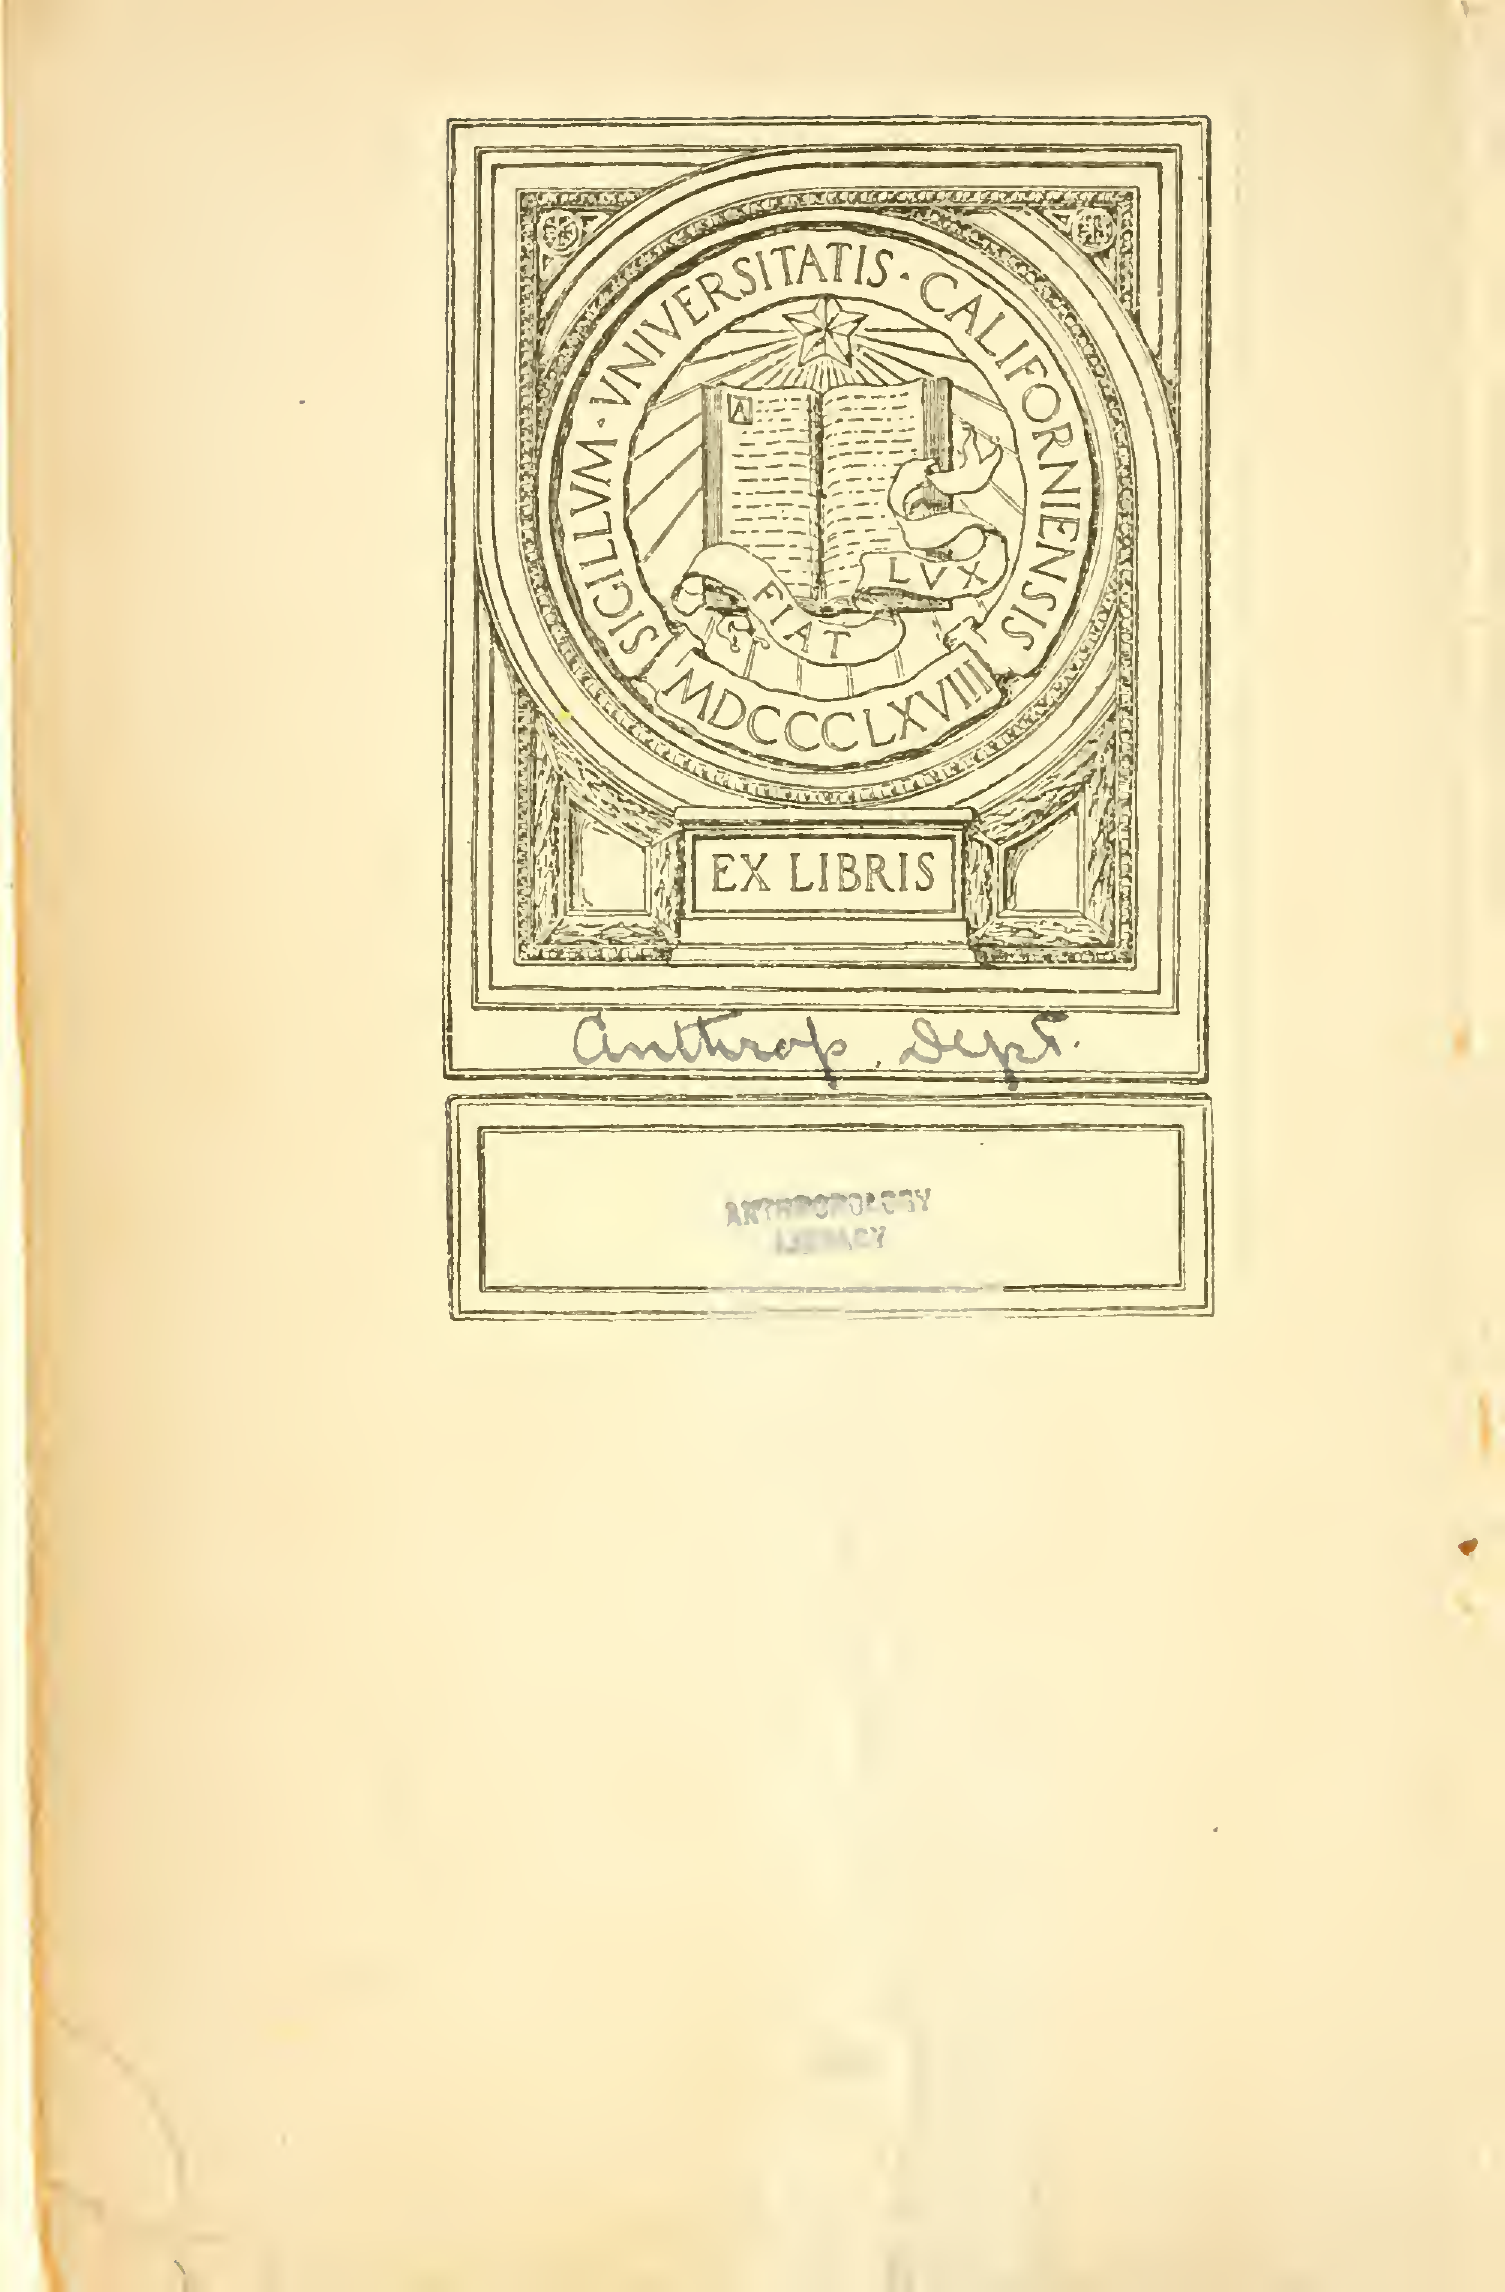 SIGILLVM · VNIVERSITATIS · CALIFORNIENSIS
A
FIAT LVX
MDCCCLXVIII
EX LIBRIS
Anthrop. Dept.
ANTHROPOLOGY
LIBRARY